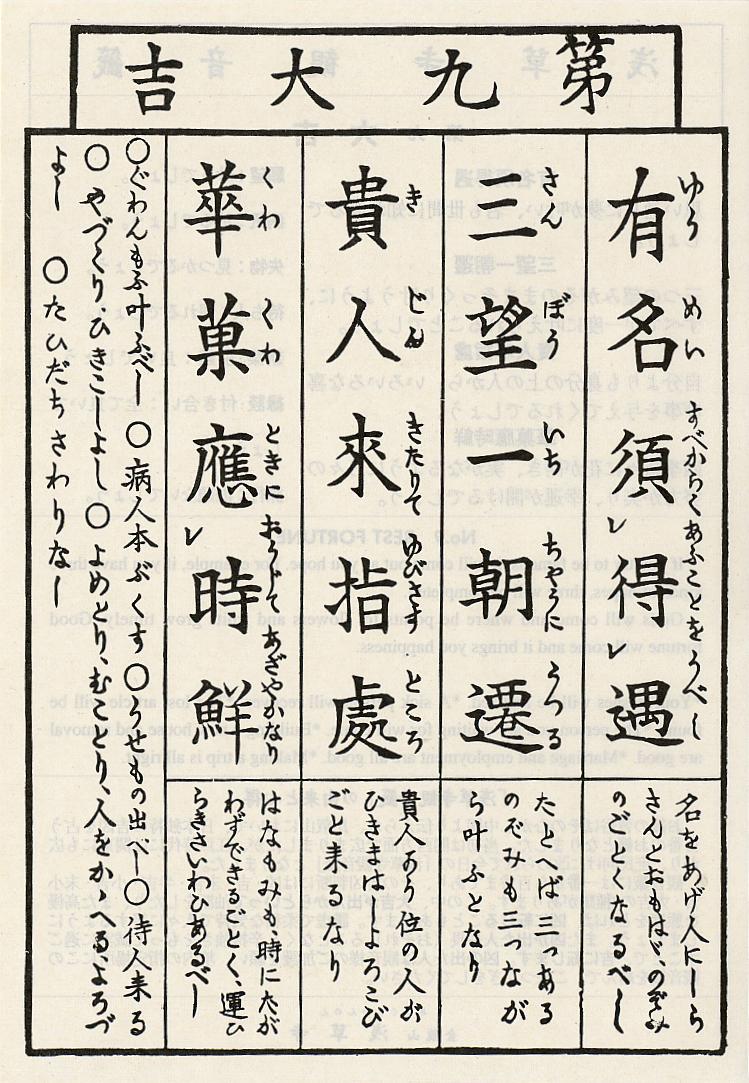 第九大吉
有名須レ得レ遇
ゆうめいすべからくあふことをうべし
名をあげ人にしら
さんとおもはゞのぞみ
のごとくなるべし
三望一朝遷
さんぼういちちやうにうつる
たとへば三しなある
のぞみも三つなが
ら叶ふとなり
貴人來指處
きじんきたりてゆびさすところ
貴人より位ゐ人が
ひきまはしよろこび
ごと来るなり
華菓應レ時鮮
くわくわときにおうじてあざやかなり
はなもみも、時にたが
わずできるごとく、運ひ
らきさいわひあべし
〇ぐわんもふ叶ふべし 〇病人本ぶくす 〇うせもの出べし 〇待人来る
〇やづくりひきこしよし 〇よめとり、むことり、人をかゝへるよろづ
よし 〇たひだちさわりなし